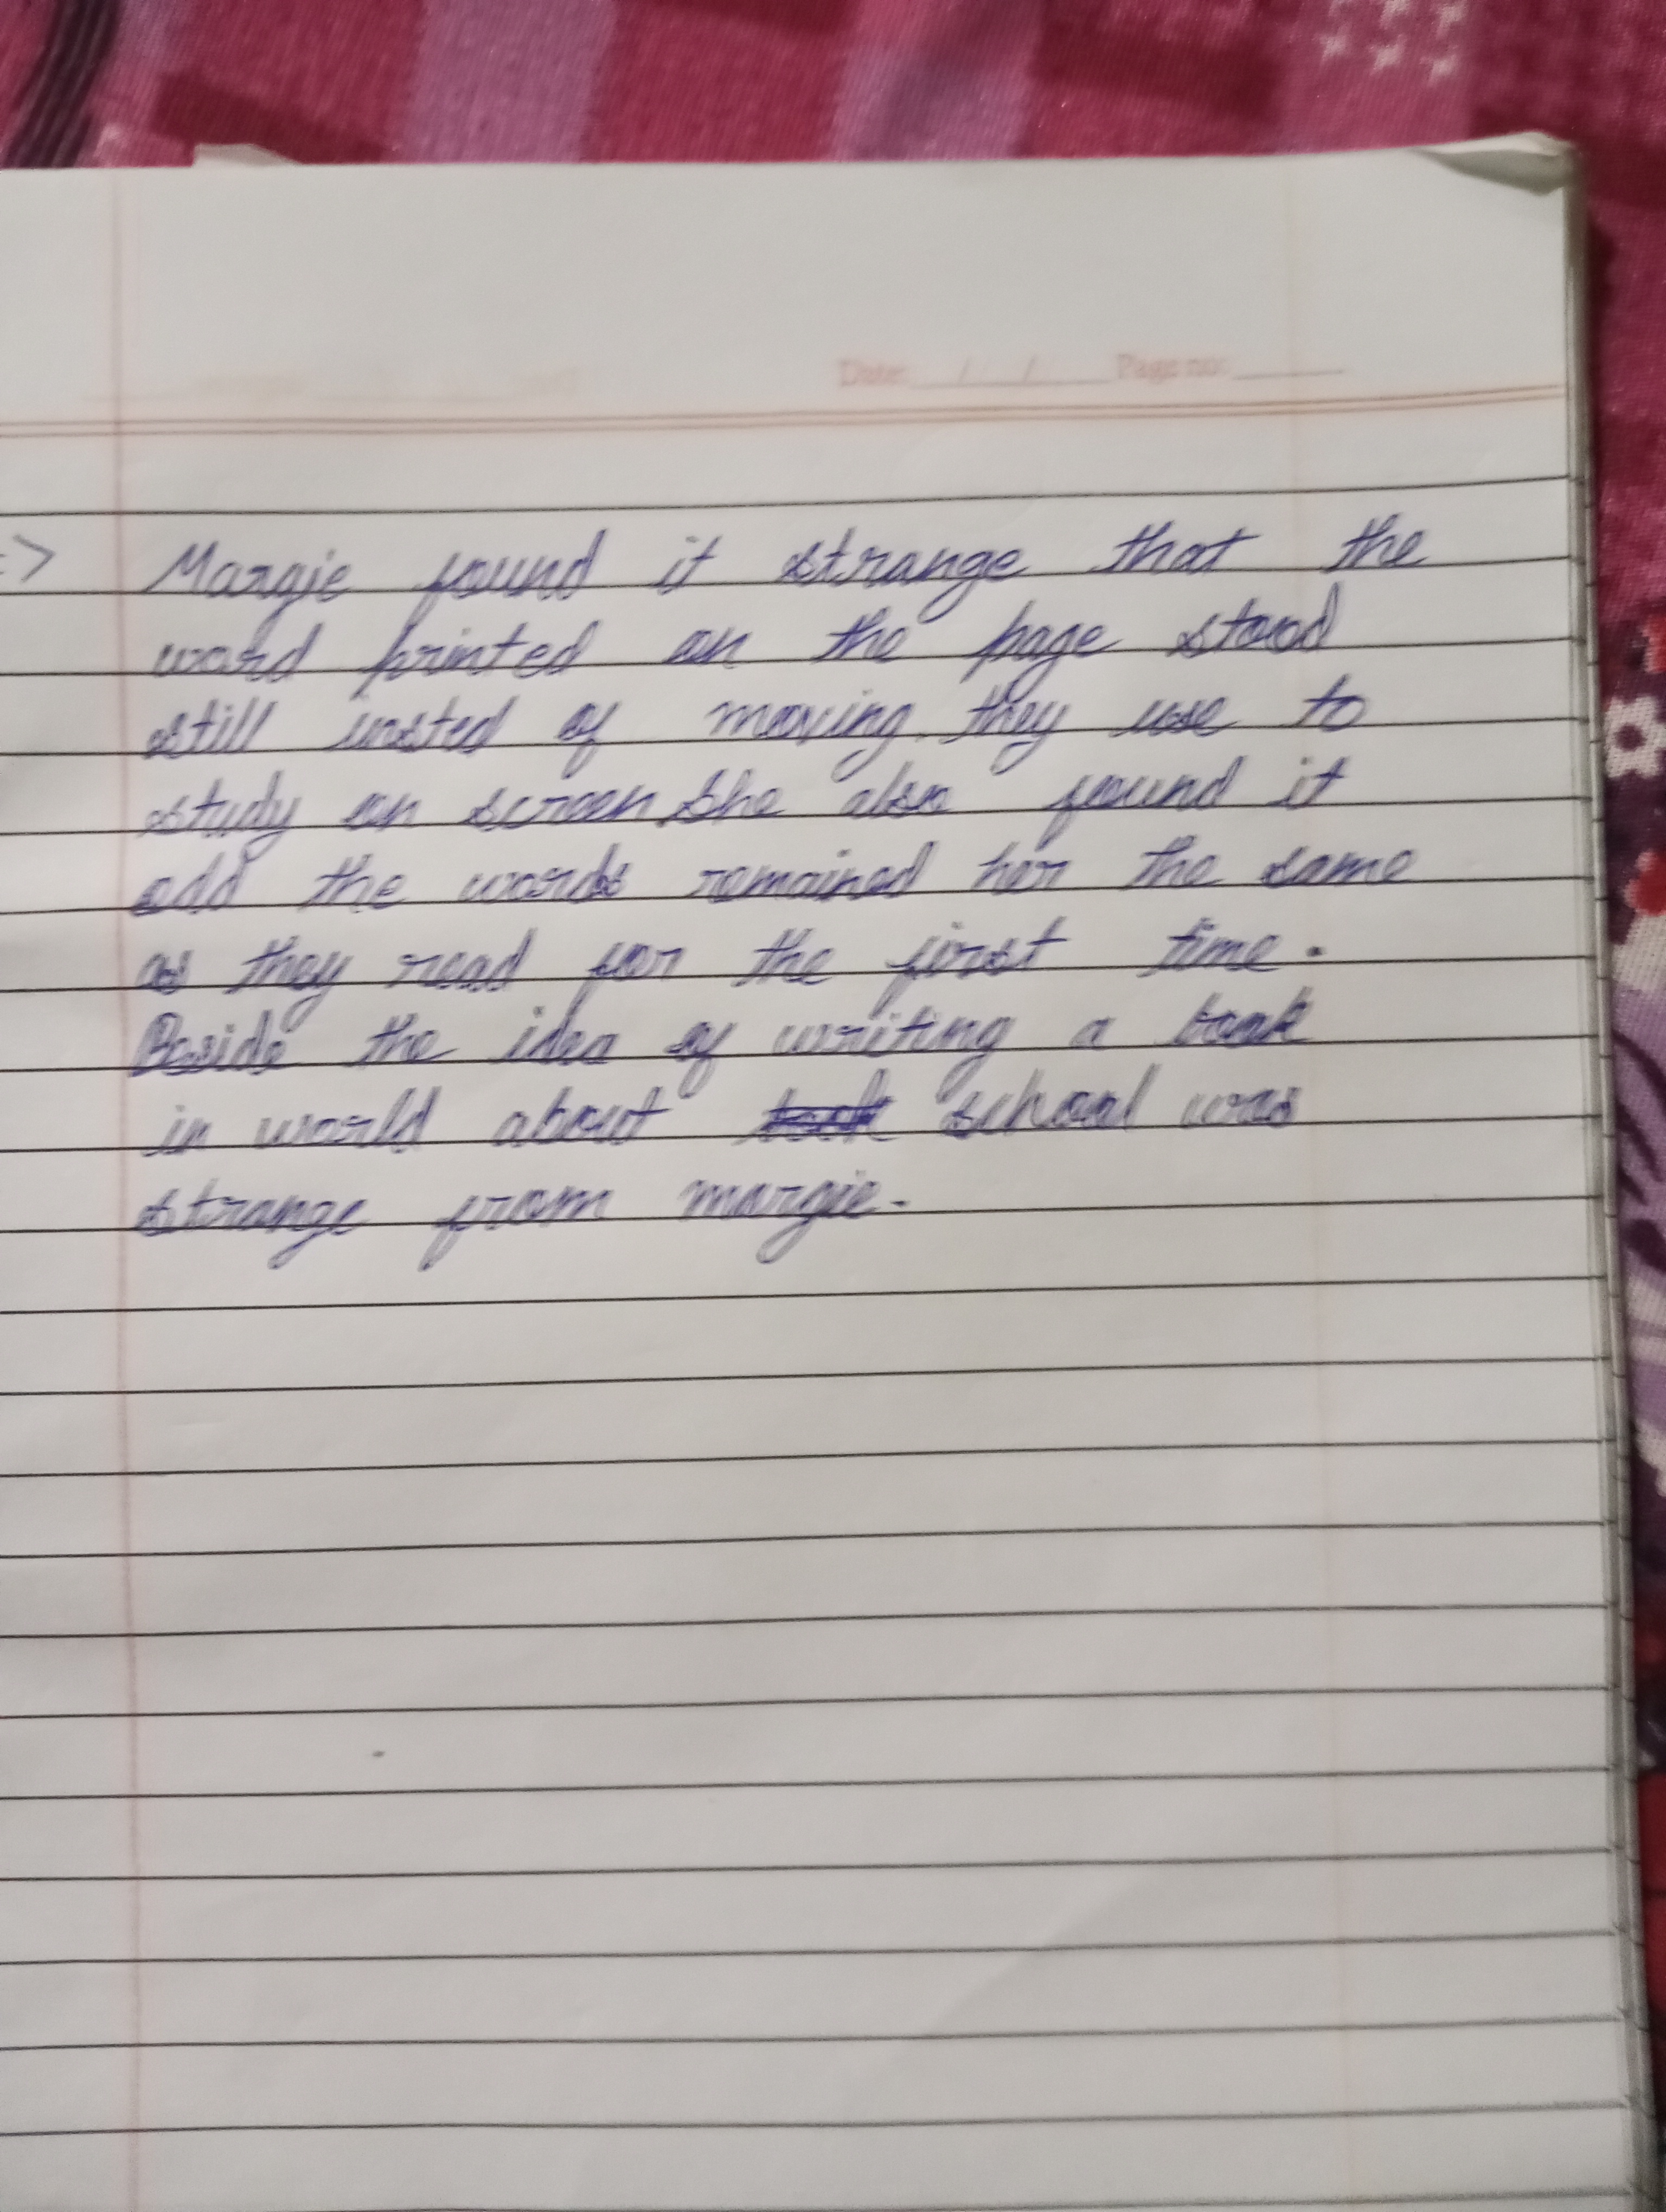 Date: / / Page no:
=> Margie found it strange that the
word printed on the page stood
still insted of moving. they use to
study on screen. She also found it
odd the words remained her the same
as they read for the first time.
Beside the idea of writing a book
in world about school was
strange from margie.